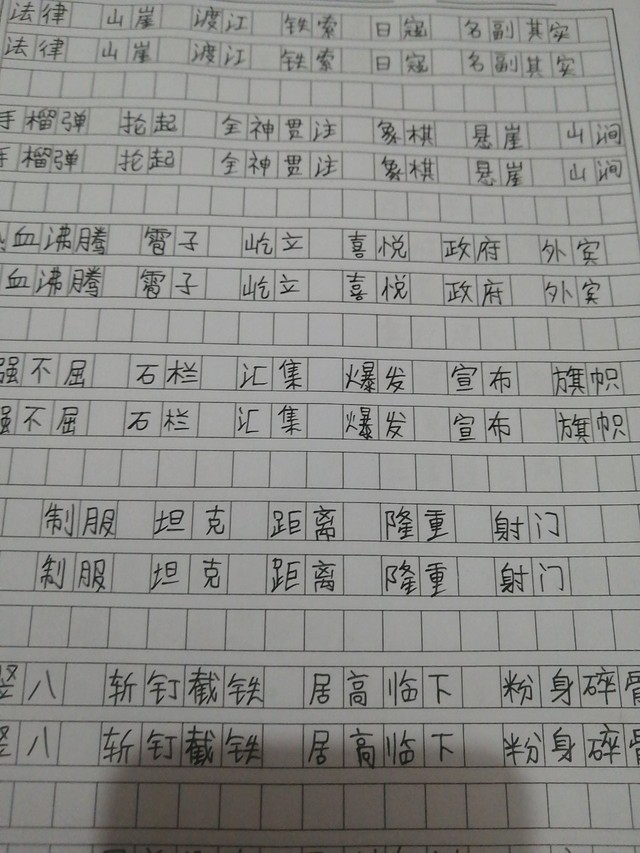 法律 山崖 渡江 铁索 日寇 名副其实
法律 山崖 渡江 铁索 日寇 名副其实
手榴弹 抡起 全神贯注 象棋 悬崖 山涧
手榴弹 抡起 全神贯注 象棋 悬崖 山涧
血沸腾 雹子 屹立 喜悦 政府 外宾
血沸腾 雹子 屹立 喜悦 政府 外宾
强不屈 石栏 汇集 爆发 宣布 旗帜
强不屈 石栏 汇集 爆发 宣布 旗帜
制服 坦克 距离 隆重 射门
制服 坦克 距离 隆重 射门
竖八 斩钉截铁 居高临下 粉身碎骨
竖八 斩钉截铁 居高临下 粉身碎骨